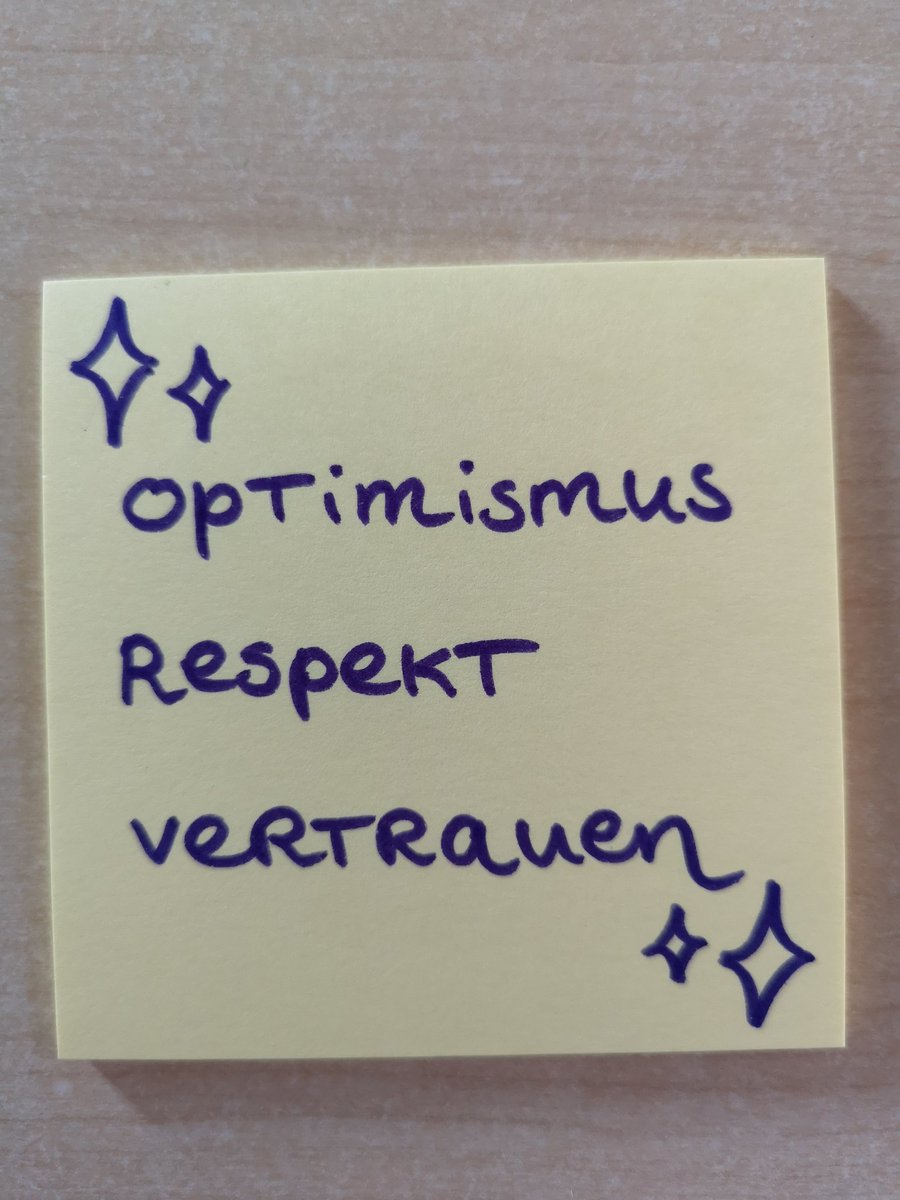 Optimismus
Respekt
Vertrauen